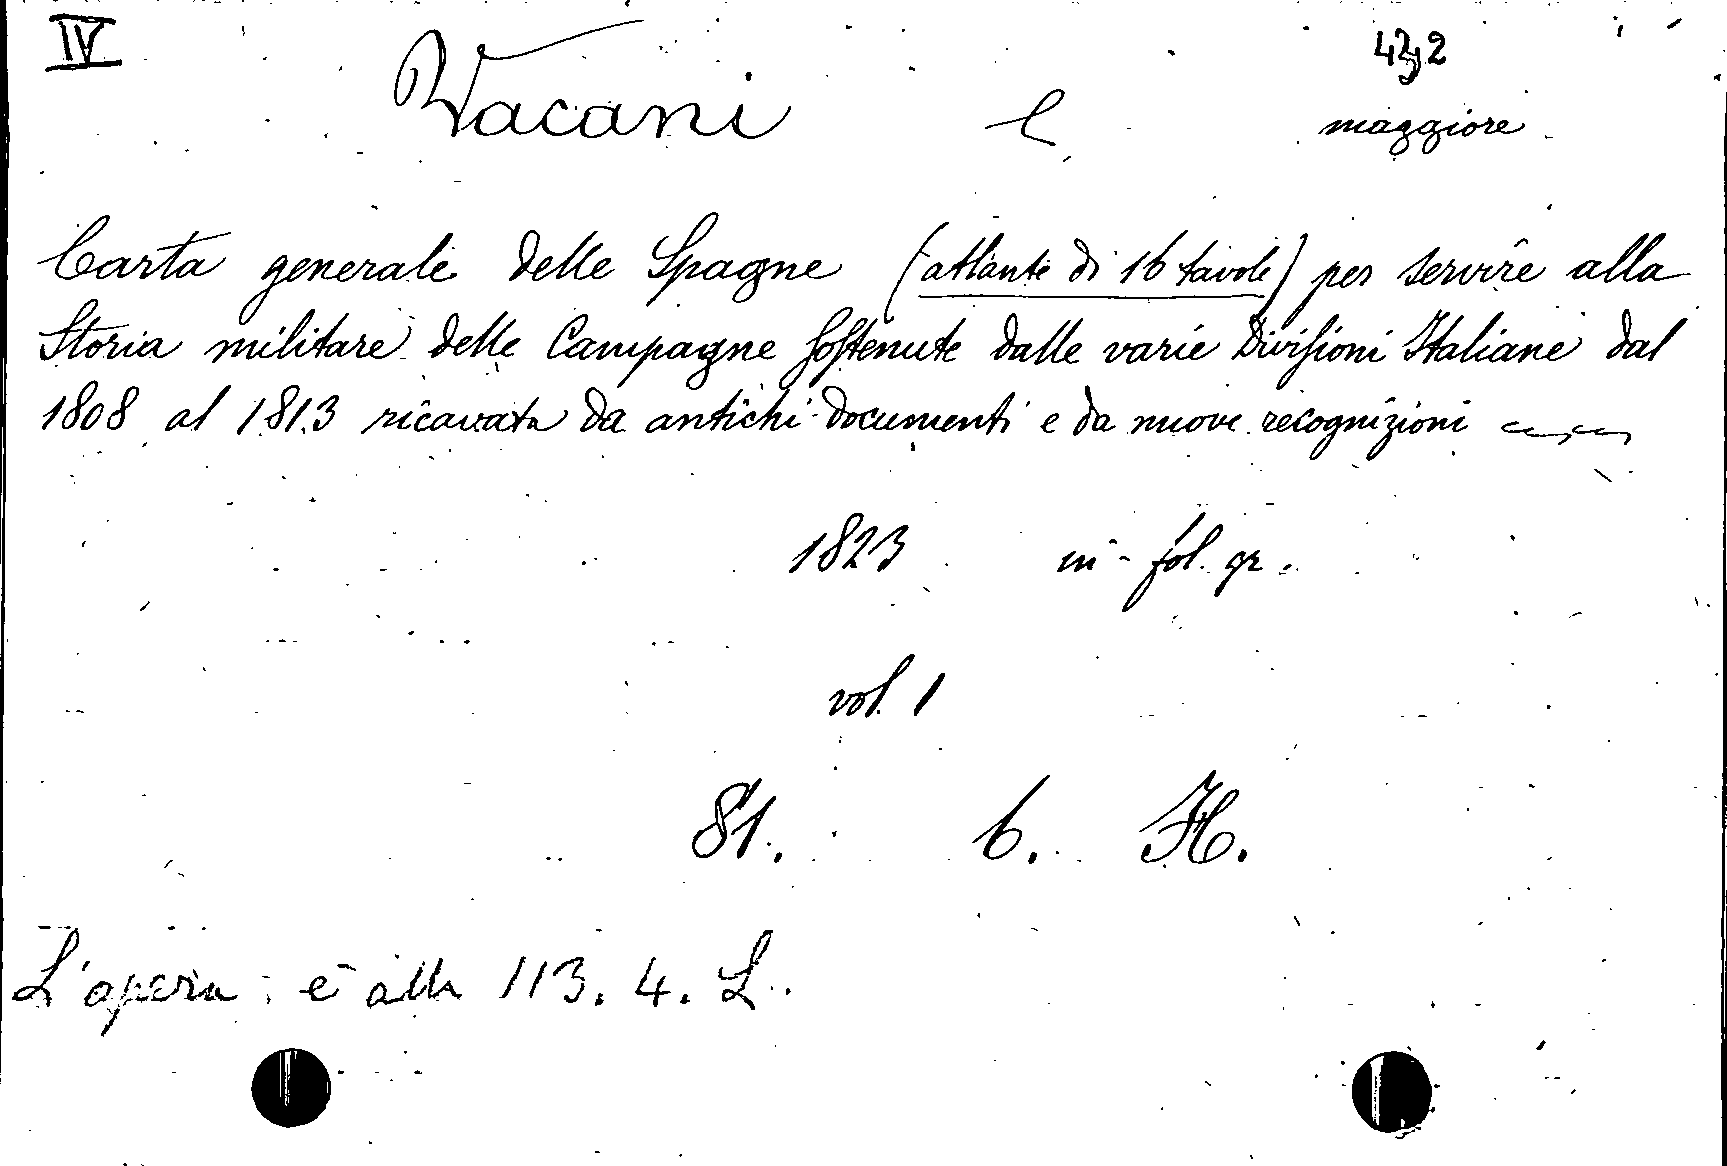 IV
Vacani C maggiore
Carta generale delle Spagne (atlante di 16 tavole) per servire alla
Storia militare delle Campagne sostenute dalle varie Divisioni Italiane dal
1808 al 1813 ricavata da antichi documenti e da nuove recognizioni
1823 in-fol. gr.
vol. 1
81. 6. H.
L'opera è alla 113. 4. L.